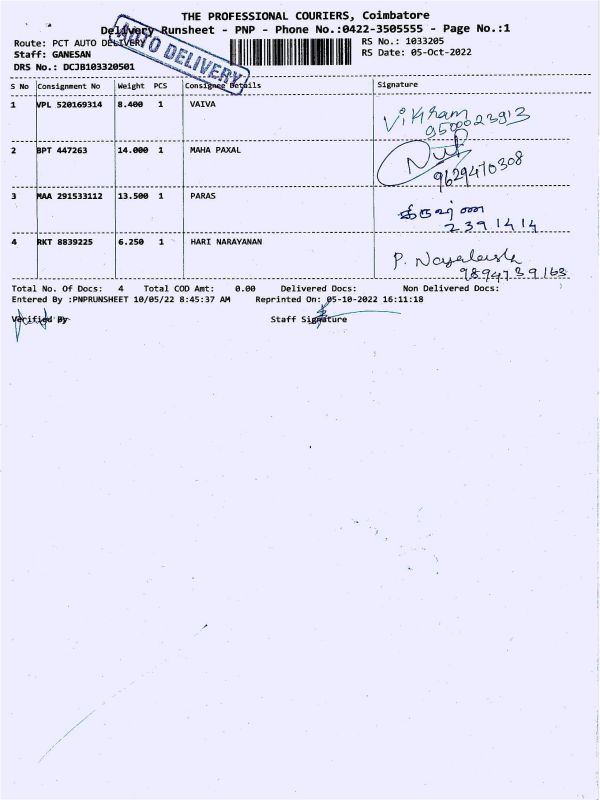 THE PROFESSIONAL COURIERS, Coimbatore
Delivery Runsheet - PNP - Phone No.:0422-3505555 - Page No.:1
Route: PCT AUTO DELIVERY
RS No.: 1033205
Staff: GANESAN
RS Date: 05-Oct-2022
DRS No.: DCJB103320501
AUTO DELIVERY
S No Consignment No Weight PCS Consignee Details Signature
1 VPL 520169314 8.400 1 VAIVA
Vikram
9500023913
2 BPT 447263 14.000 1 MAHA PAXAL
9629470308
3 MAA 291533112 13.500 1 PARAS
2391414
4 RKT 8839225 6.250 1 HARI NARAYANAN
P.
9894739163
Total No. Of Docs: 4 Total COD Amt: 0.00 Delivered Docs: Non Delivered Docs:
Entered By :PNPRUNSHEET 10/05/22 8:45:37 AM Reprinted On: 05-10-2022 16:11:18
Verified By Staff Signature